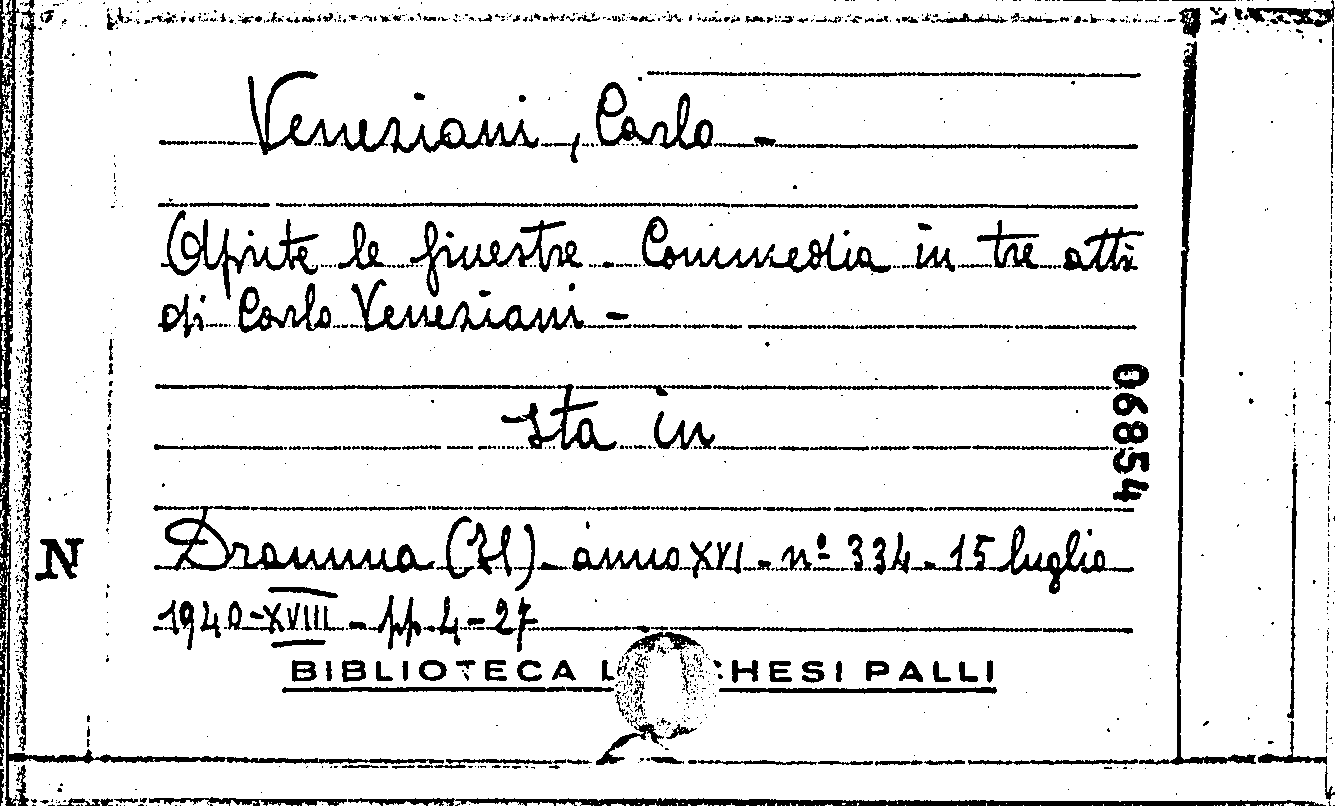 Veneziani, Carlo -
Aprite le finestre - Commedia in tre atti
di Carlo Veneziani -
Sta in
06854
N
Dramma (Il) - anno XVI - nº 334 - 15 luglio
1940-XVIII - pp. 4-27
BIBLIOTECA L CHESI PALLI